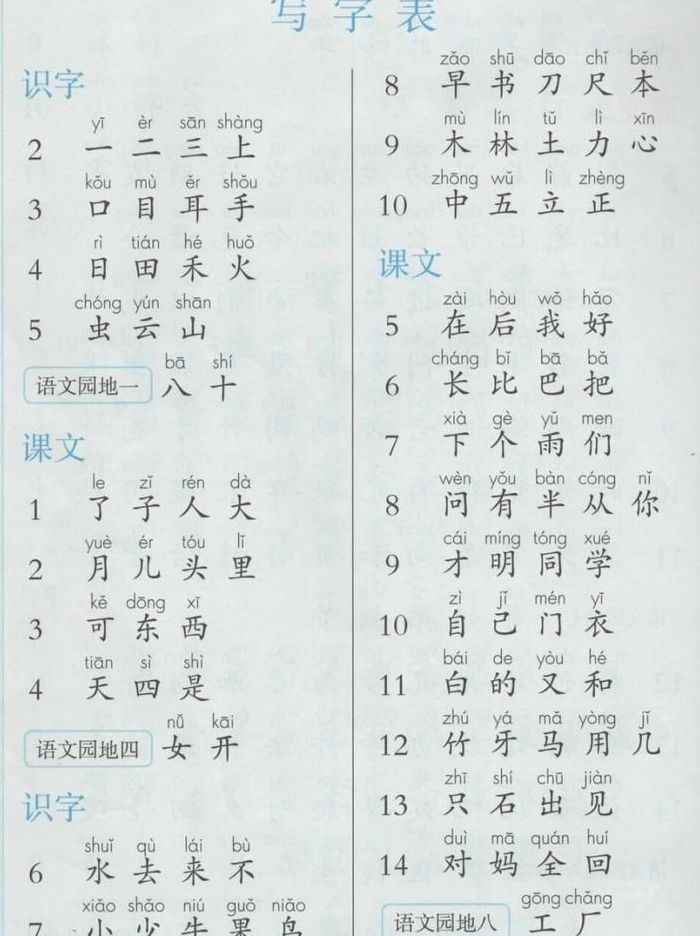 写字表
识字
yī èr sān shàng
2 一 二 三 上
kǒu mù ěr shǒu
3 口 目 耳 手
rì tián hé huǒ
4 日 田 禾 火
chóng yún shān
5 虫 云 山
bā shí
语文园地一 八 十
课文
le zǐ rén dà
1 了 子 人 大
yuè ér tóu lǐ
2 月 儿 头 里
kě dōng xī
3 可 东 西
tiān sì shì
4 天 四 是
nǚ kāi
语文园地四 女 开
识字
shuǐ qù lái bù
6 水 去 来 不
xiǎo shǎo niú guǒ niǎo
7 小 少 牛 果 鸟
zǎo shū dāo chǐ běn
8 早 书 刀 尺 本
mù lín tǔ lì xīn
9 木 林 土 力 心
zhōng wǔ lì zhèng
10 中 五 立 正
课文
zài hòu wǒ hǎo
5 在 后 我 好
cháng bǐ bā bǎ
6 长 比 巴 把
xià gè yǔ men
7 下 个 雨 们
wèn yǒu bàn cóng nǐ
8 问 有 半 从 你
cái míng tóng xué
9 才 明 同 学
zì jǐ mén yī
10 自 己 门 衣
bái de yòu hé
11 白 的 又 和
zhú yá mǎ yòng jǐ
12 竹 牙 马 用 几
zhī shí chū jiàn
13 只 石 出 见
duì mā quán huí
14 对 妈 全 回
gōng chǎng
语文园地八 工 厂